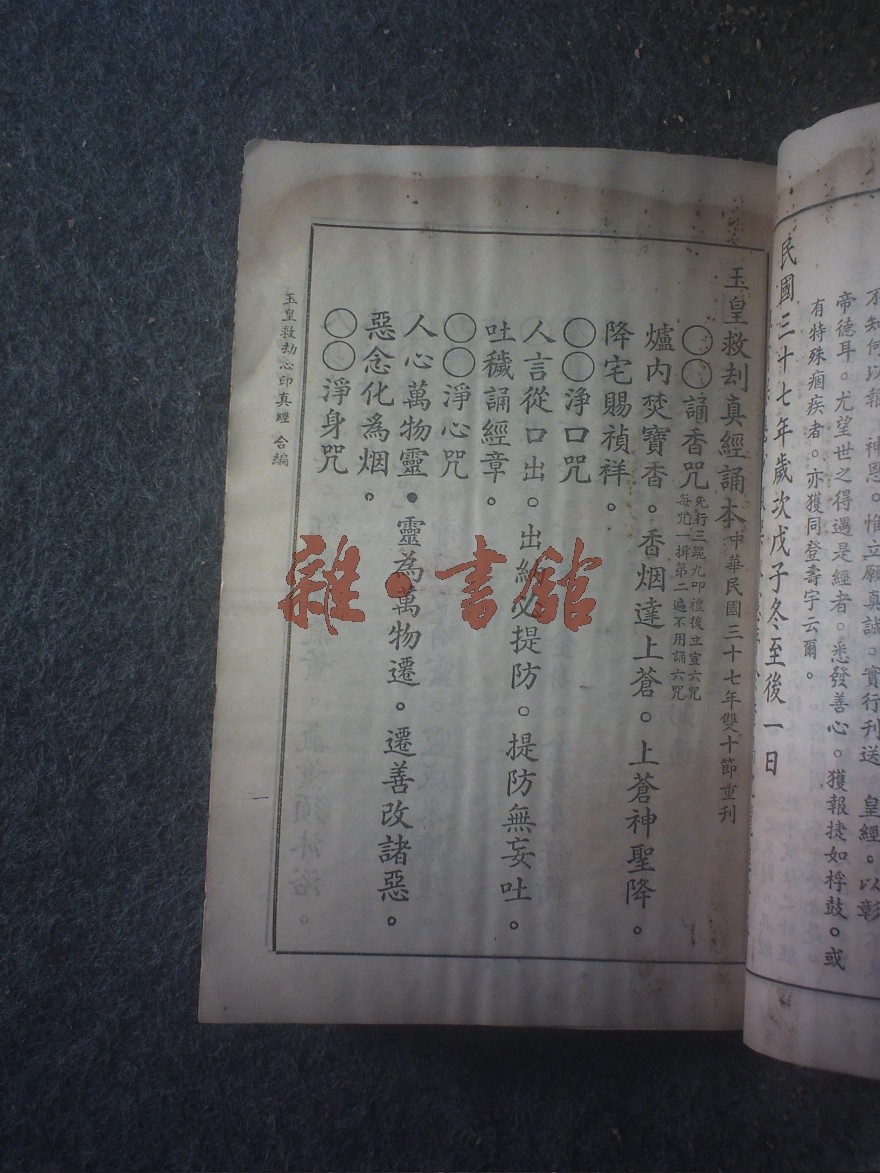 不知何以報 神恩。惟立願真誠。實行刊送 皇經。以彰
帝德耳。尤望世之得遇是經者。悉發善心。獲報捷如桴鼓。或
有特殊痼疾者。亦獲同登壽宇云爾。
民國三十七年歲次戊子冬至後一日
玉皇救刦真經誦本 中華民國三十七年雙十節重刊
〇〇〇誦香咒 先行三跪九叩禮後立宣六咒
每咒一揖第二遍不用誦六咒
爐內焚寶香。香烟達上蒼。上蒼神聖降。
降宅賜禎祥。
〇〇淨口咒
人言從口出。出納必提防。提防無妄吐。
吐穢誦經章。
〇〇淨心咒
人心萬物靈。靈為萬物遷。遷善改諸惡。
惡念化為烟。
〇〇淨身咒
玉皇救劫心印真經 合編
一
雜·書館